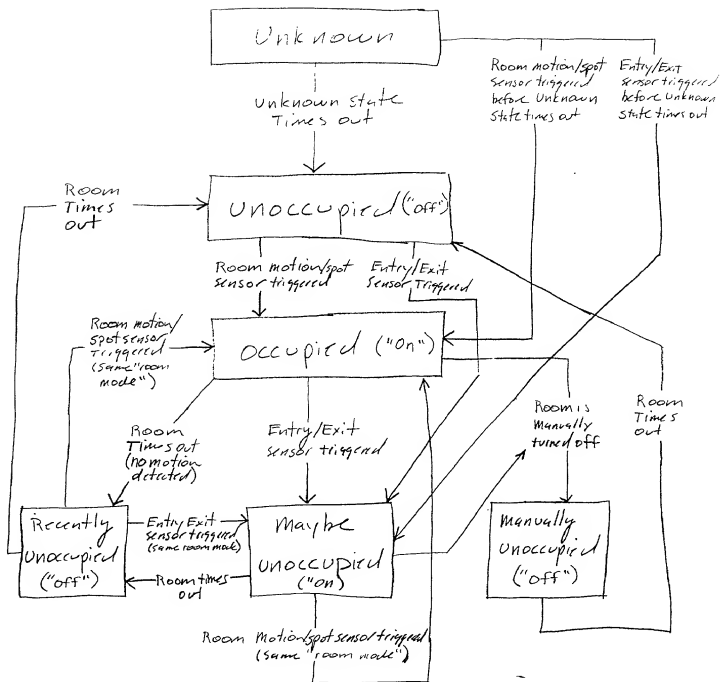 Unknown
Unknown State
Times out
Room motion/spot
sensor triggered
before Unknown
State times out
Entry/Exit
sensor triggered
before Unknown
State times out
Room
Times
out
Unoccupied ("off")
Room motion/spot
sensor triggered
Entry/Exit
Sensor Triggered
Room motion/
spot sensor
Triggered
(same "room
mode")
Occupied ("On")
Room
Times out
(no motion
detected)
Entry/Exit
sensor triggered
Room is
Manually
turned off
Room
Times
out
Recently
Unoccupied
("off")
Entry Exit
sensor triggered
(same room mode)
Room times
out
Maybe
Unoccupied
("On)
Manually
Unoccupied
("off")
Room Motion/spot sensor triggered
(same "room mode")